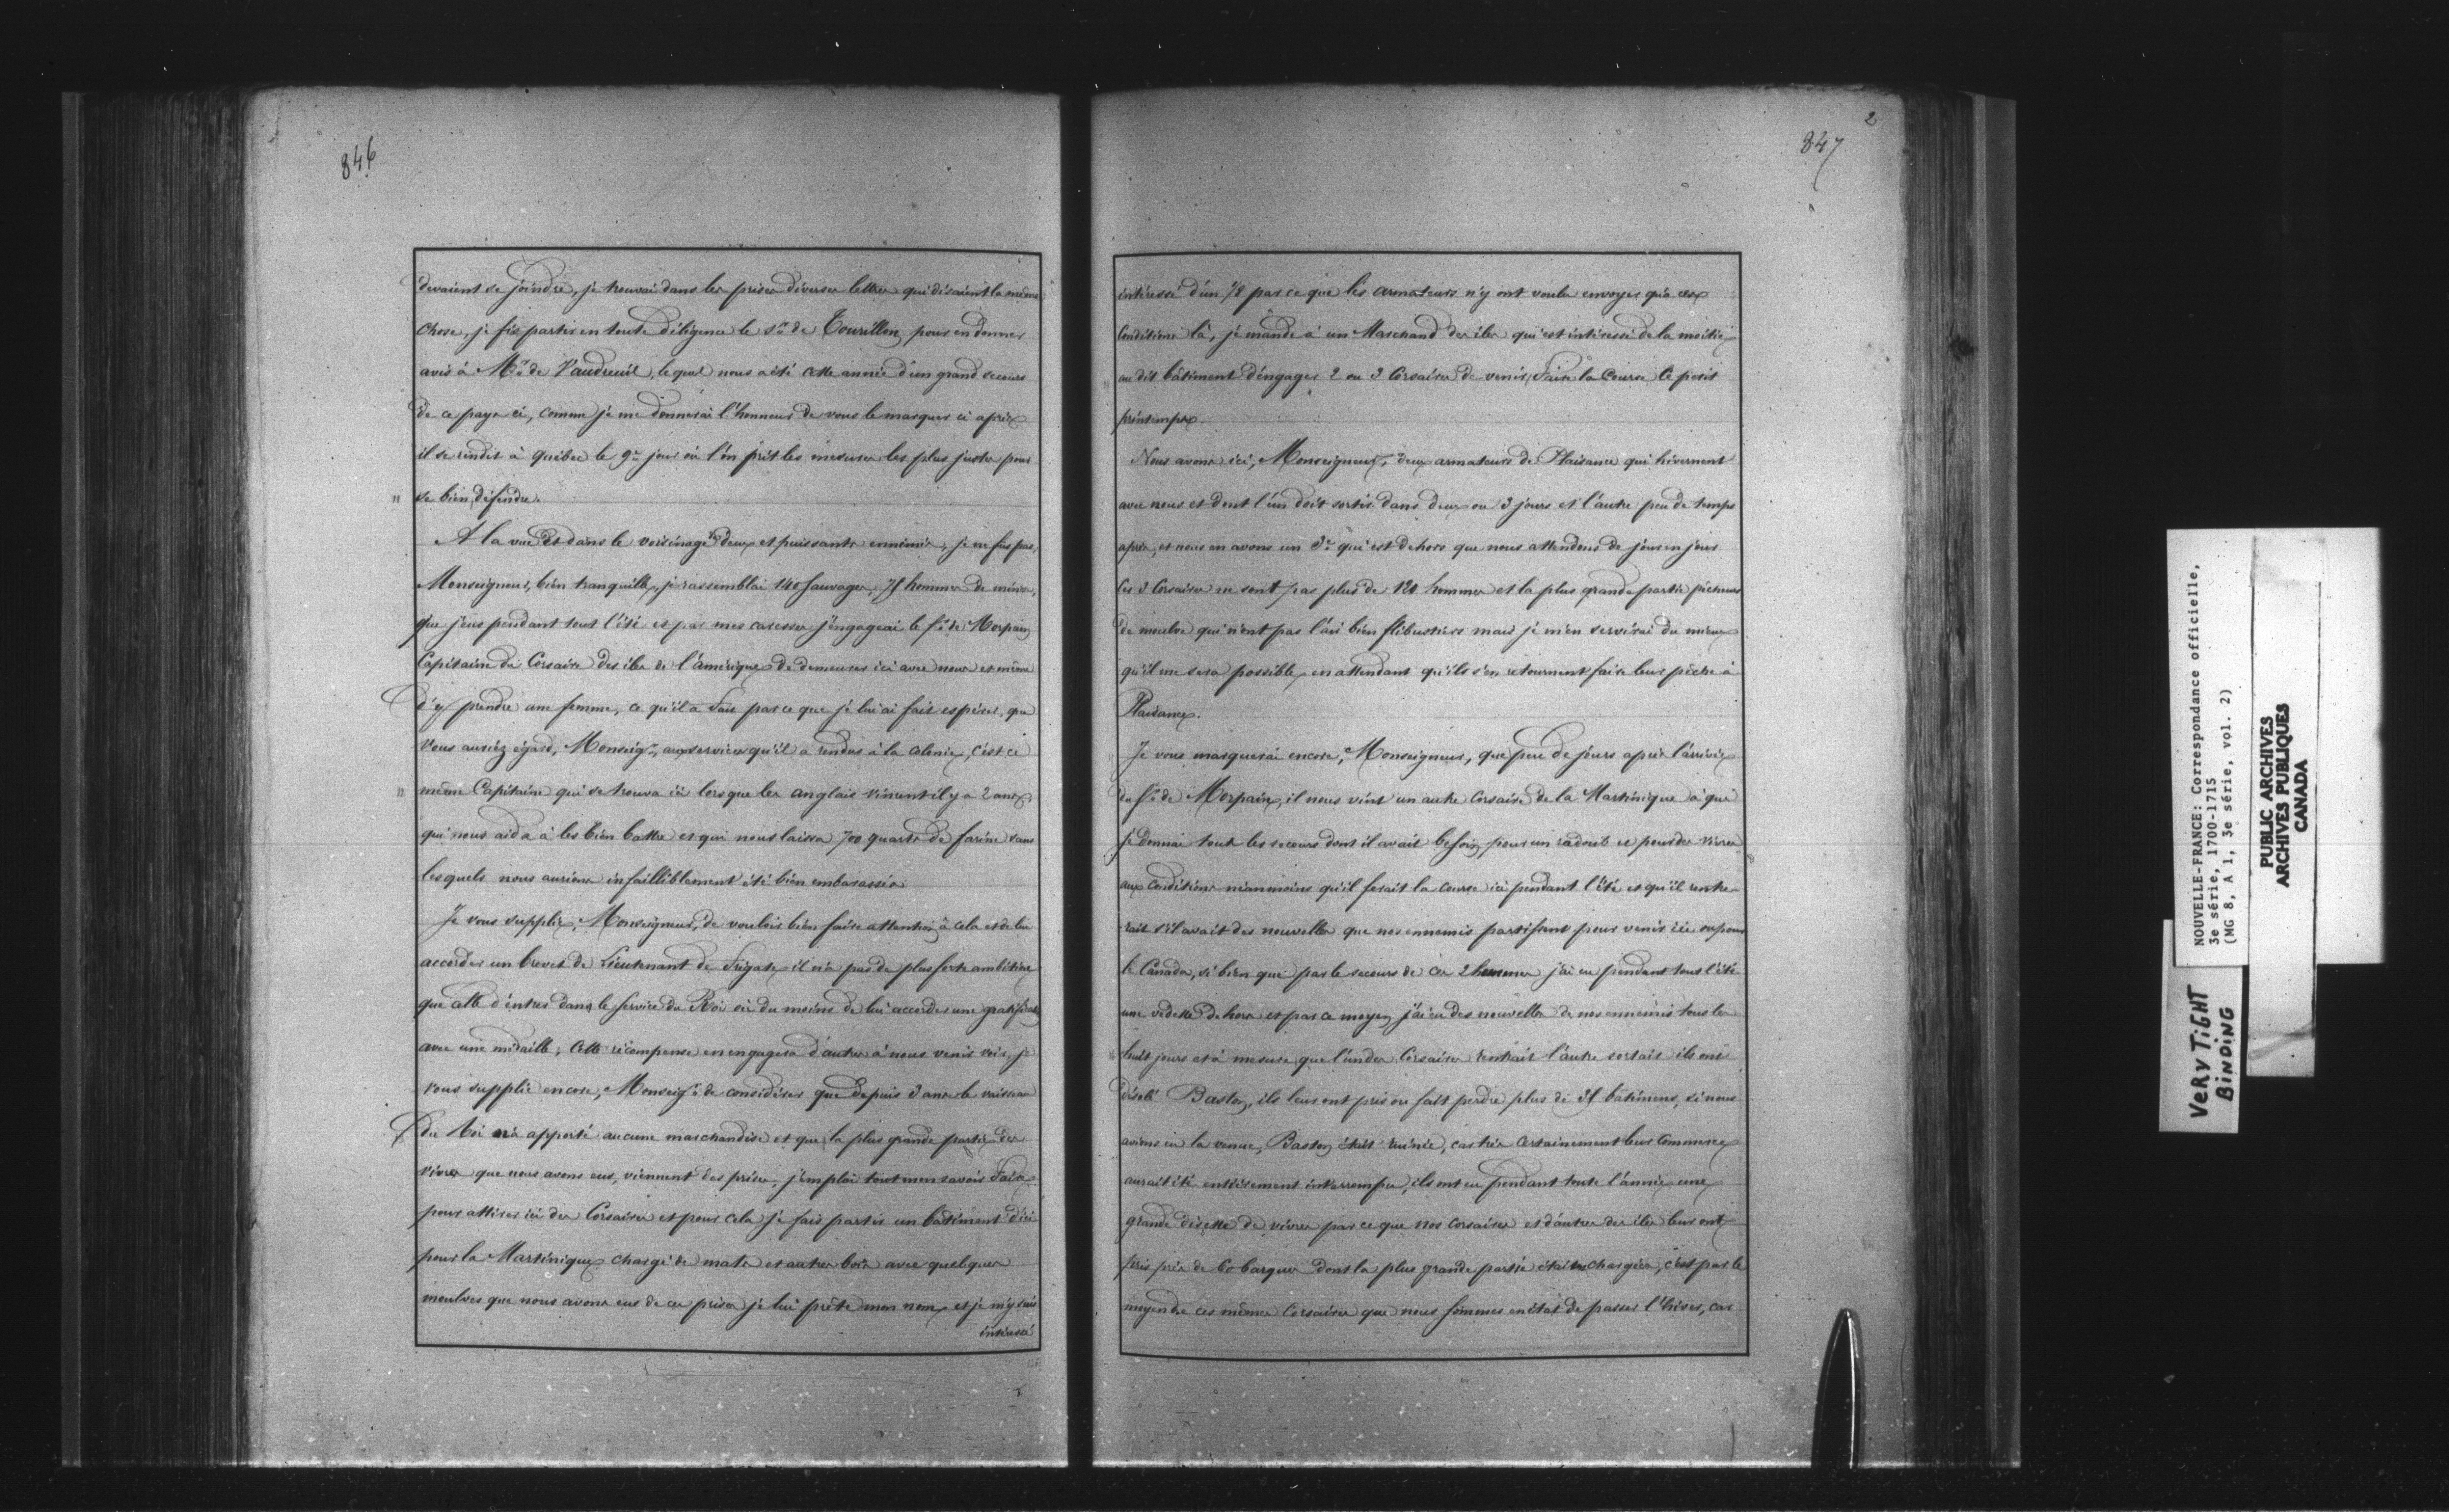 846
devaient se joindre, je trouvai dans les prises diverses lettres qui disaient la même
chose, je fis partir en toute diligence le Sr. de Tourillon pour en donner
avis à Mr. de Vaudreuil, lequel nous a été cette année d'un grand secours
de ce pays ci, comme je me donnerai l'honneur de vous le marquer ci après
il se rendit à Québec le 9e jour où l'on prit les mesures les plus justes pour
se bien défendre.
A la vue et dans le voisinage de deux et puissants ennemis, je ne fus pas,
Monseigneur, bien tranquille, je rassemblai 140 sauvages, 75 hommes de mines,
que j'eus pendant tout l'été et par mes caresses j'engageai le Sr. de Morpain
Capitaine de Corsaire des iles de l'amérique de demeurer ici avec nous et même
d'y prendre une femme, ce qu'il a fait parce que je lui ai fait espérer, que
vous auriez égard, Monseigr., aux services qu'il a rendus à la colonie, c'est ce
même Capitaine qui se trouva ici lorsque les anglais vinrent il y a 2 ans,
qui nous aida à les bien battre et qui nous laissa 700 quarts de farine sans
lesquels nous aurions infailliblement été bien embarassés
Je vous supplie, Monseigneur, de vouloir bien faire attention à cela et de lui
accorder un brevet de Lieutenant de frégate il n'a pas de plus forte ambition
que celle d'entrer dans le service du Roi ou du moins de lui accorder une gratifion
avec une médaille; cette récompense en engagera d'autres à nous venir voir, je
vous supplie encore, Monseigr. de considérer que depuis 3 ans le vaisseau
du Roi n'a apporté aucune marchandise et que la plus grande partie des
vivres que nous avons eus, viennent des prises, j'emploi tout mon savoir faire
pour attirer ici des Corsaires et pour cela je fais partir un bâtiment d'ici
pour la Martinique chargé de mats et autres bois avec quelques
moulues que nous avons eus de ces prises je lui prête mon nom et je m'y suis
intéressé
2
847
intéressé d'un 1/8 parce que les armateurs n'y ont voulu envoyer qu'à ces
conditions là, je mande à un Marchand des iles qui est intéressé de la moitié
au dit bâtiment d'engager 2 ou 3 Corsaires de venir faire la Course le petit
printemps.
Nous avons ici, Monseigneur, deux armateurs de Plaisance qui hivernent
avec nous et dont l'un doit sortir dans deux ou 3 jours et l'autre peu de temps
après, et nous en avons un 3e qui est dehors que nous attendons de jour en jour
ces 3 Corsaires ne sont pas plus de 120 hommes et la plus grande partie pêcheurs
de moulue qui n'ont pas l'air bien flibustiers mais je m'en servirai du mieux
qu'il me sera possible, en attendant qu'ils s'en retournent faire leur pêche à
Plaisance.
Je vous marquerai encore, Monseigneur, que peu de jours après l'arrivée
du Sr. de Morpain, il nous vint un autre Corsaire de la Martinique à qui
je donnai tout les secours dont il avait besoin pour un radoub et pour des vivres
aux conditions néanmoins qu'il ferait la Course ici pendant l'été et qu'il rentre-
rait s'il avait des nouvelles que nos ennemis partissent pour venir ici ou pour
le Canada, si bien que par le secours de ces 2 hommes j'ai eu pendant tout l'été
une vedette dehors et par ce moyen j'ai eu des nouvelles de nos ennemis tous les
huit jours et à mesure que l'un des Corsaires rentrait l'autre sortait ils ont
désolé Baston, ils leur ont pris ou fait perdre plus de 35 bâtimens, si nous
avions eu la venue, Baston était ruinée, car très certainement leur Commerce
aurait été entièrement interrompu, ils ont eu pendant toute l'année une
grande disette de vivres parce que nos corsaires et d'autres des iles leur ont
pris près de 60 barques dont la plus grande partie étaient chargées, c'est par le
moyen de ces mêmes Corsaires que nous sommes en état de passer l'hiver, car
NOUVELLE-FRANCE: Correspondance officielle,
3e série, 1700-1715
(MG 8, A 1, 3e série, vol. 2)
PUBLIC ARCHIVES
ARCHIVES PUBLIQUES
CANADA
VERY TIGHT
BINDING